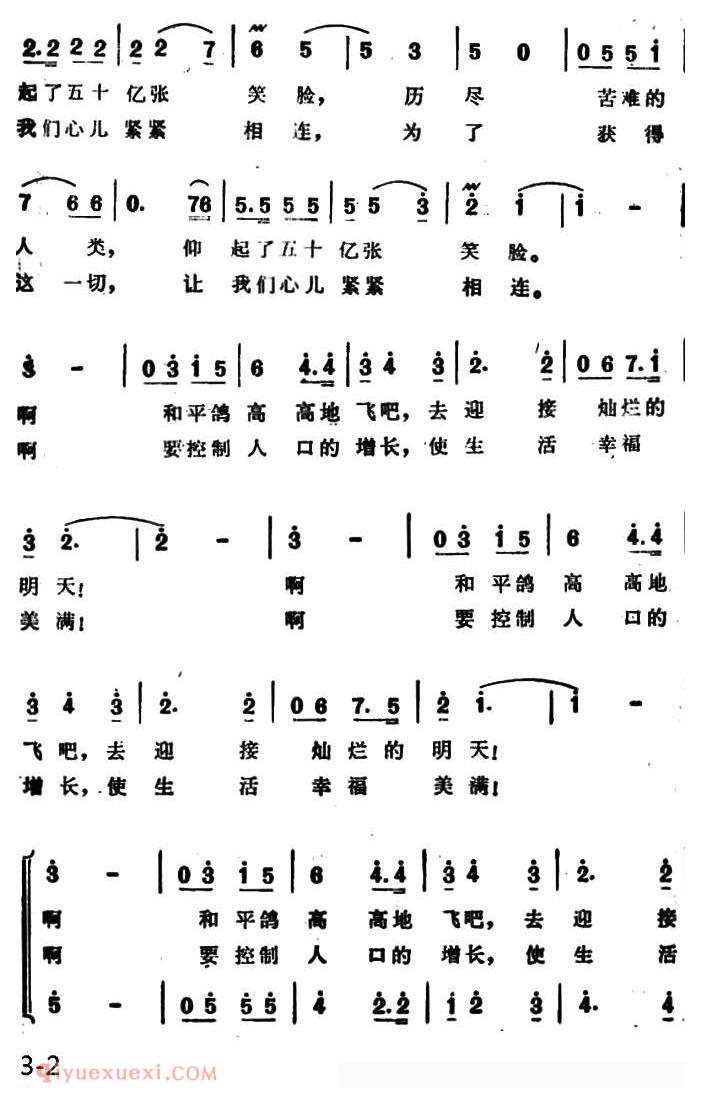 2. 2 2 2 | 2 2 7 | 6 5 | 5 3 | 5 0 | 0 5 5 1
起了五十 亿张 笑 脸， 历 尽 苦难的
我们心儿 紧紧 相 连， 为 了 获得
7 6 6 | 0. 76 | 5. 5 5 5 | 5 5 3 | 2 1 | 1 -
人 类， 仰 起了五十 亿张 笑 脸。
这 一切， 让 我们心儿 紧紧 相 连。
3 - | 0 3 1 5 | 6 4. 4 | 3 4 3 | 2. 2 | 0 6 7. 1
啊 和平鸽 高 高地 飞吧，去 迎 接 灿烂的
啊 要控制 人 口的 增长，使 生 活 幸福
3 2. | 2 - | 3 - | 0 3 1 5 | 6 4. 4
明天！ 啊 和平鸽 高 高地
美满！ 啊 要控制 人 口的
3 4 3 | 2. 2 | 0 6 7. 5 | 2 1. | 1 -
飞吧，去 迎 接 灿烂的 明天！
增长，使 生 活 幸福 美满！
3 - | 0 3 1 5 | 6 4. 4 | 3 4 3 | 2. 2
啊 和平鸽 高 高地 飞吧，去 迎 接
啊 要控制 人 口的 增长，使 生 活
5 - | 0 5 5 5 | 4 2. 2 | 1 2 3 | 4. 4
3-2
qiyuexuexi.com